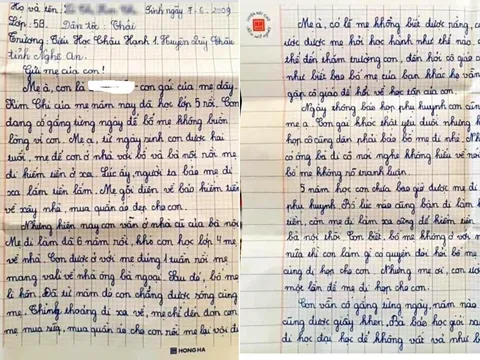 Họ và tên: Sinh ngày 7.6.2009
Lớp: 5B. Dân tộc: Thái
Trường Tiểu Học Châu Hạnh 1 Huyện Quỳ Châu
tỉnh Nghệ An.
Gửi mẹ của con!
Mẹ à, con là con gái của mẹ đây.
Kim Chi của mẹ năm nay đã học lớp 5 rồi. Con
đang cố gắng từng ngày để bố mẹ không buồn
lòng vì con. Mẹ ạ, từ ngày sinh con được hai
tuổi, mẹ để con ở nhà với bố và bà nội rồi mẹ
đi kiếm tiền ở xa. Lúc ấy, người ta bảo mẹ đi
xa lắm tiền lắm. Mẹ gọi điện về bảo kiếm tiền
về xây nhà, mua quần áo đẹp cho con.
Nhưng hiện nay con vẫn ở nhà cũ của bà nội
Mẹ đi làm đã 6 năm rồi, khi con học lớp 4 mẹ
về nhà. Con được ở với mẹ đúng 1 tuần rồi mẹ
mang vali về nhà ông bà ngoại. Sau đó, bố mẹ
li hôn. Đã từ năm đó con chẳng được sống cùng
mẹ. Thỉnh thoảng đi xa về, mẹ chỉ đến đón con
mẹ mua sữa, mua quần áo cho con rồi mẹ lại vội đi
HONG HA
Mẹ à, có lẽ mẹ không biết được rằng, c
ước được mẹ hỏi học hành như thế nào.
thế đến thăm trường con, đến hỏi cô giáo
như biết bao bố mẹ của bạn khác họ vẫn
gặp cô giáo để hỏi về học tập của con.
Ngày thông báo họp phụ huynh con cũng
mẹ ạ. Con gái khóc thật yếu đuối nhưng
họp cô cũng dặn phải bảo bố mẹ đi nhé. Nh
có ông bà đi cô nói nghe không hiểu về nói
bố mẹ không rõ tranh luận.
5 năm học con chưa bao giờ được mẹ đi
phụ huynh. Bố lúc nào cũng bận đi làm
tiền, còn mẹ đi làm xa cũng để kiếm tiền
bà nói thôi. Con biết, bố mẹ không ở với
nữa thì con làm gì có quyền đòi hỏi bố mẹ
cùng đi họp cho con. Nhưng mẹ ơi, con ước
một lần để mẹ đi họp cho con.
Con vẫn cố gắng từng ngày, năm nào
cũng được giấy khen. Bà bảo học giỏi sau
đi học đại học để không vất vả như b